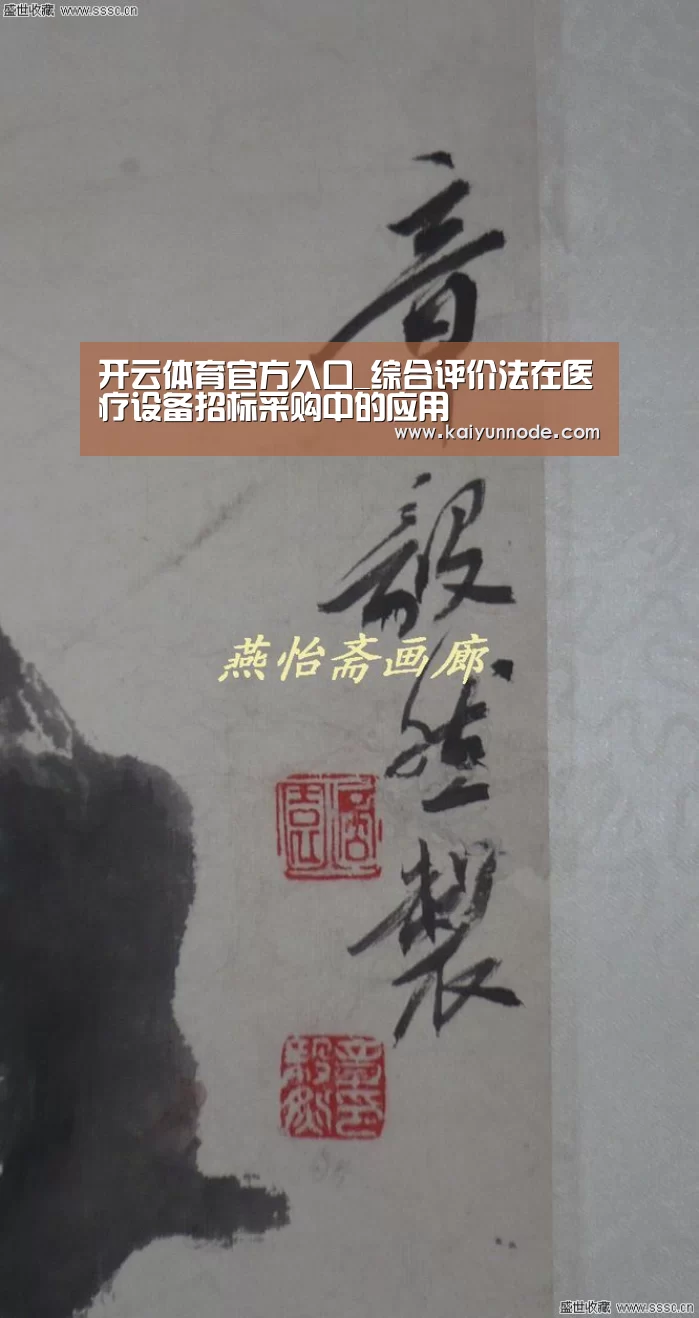 盛世收藏 www.sssc.cn
开云体育官方入口_综合评价法在医
疗设备招标采购中的应用
www.kaiyunnode.com
毅然製
燕怡斋画廊
章毅然印
盛世收藏 www.sssc.cn